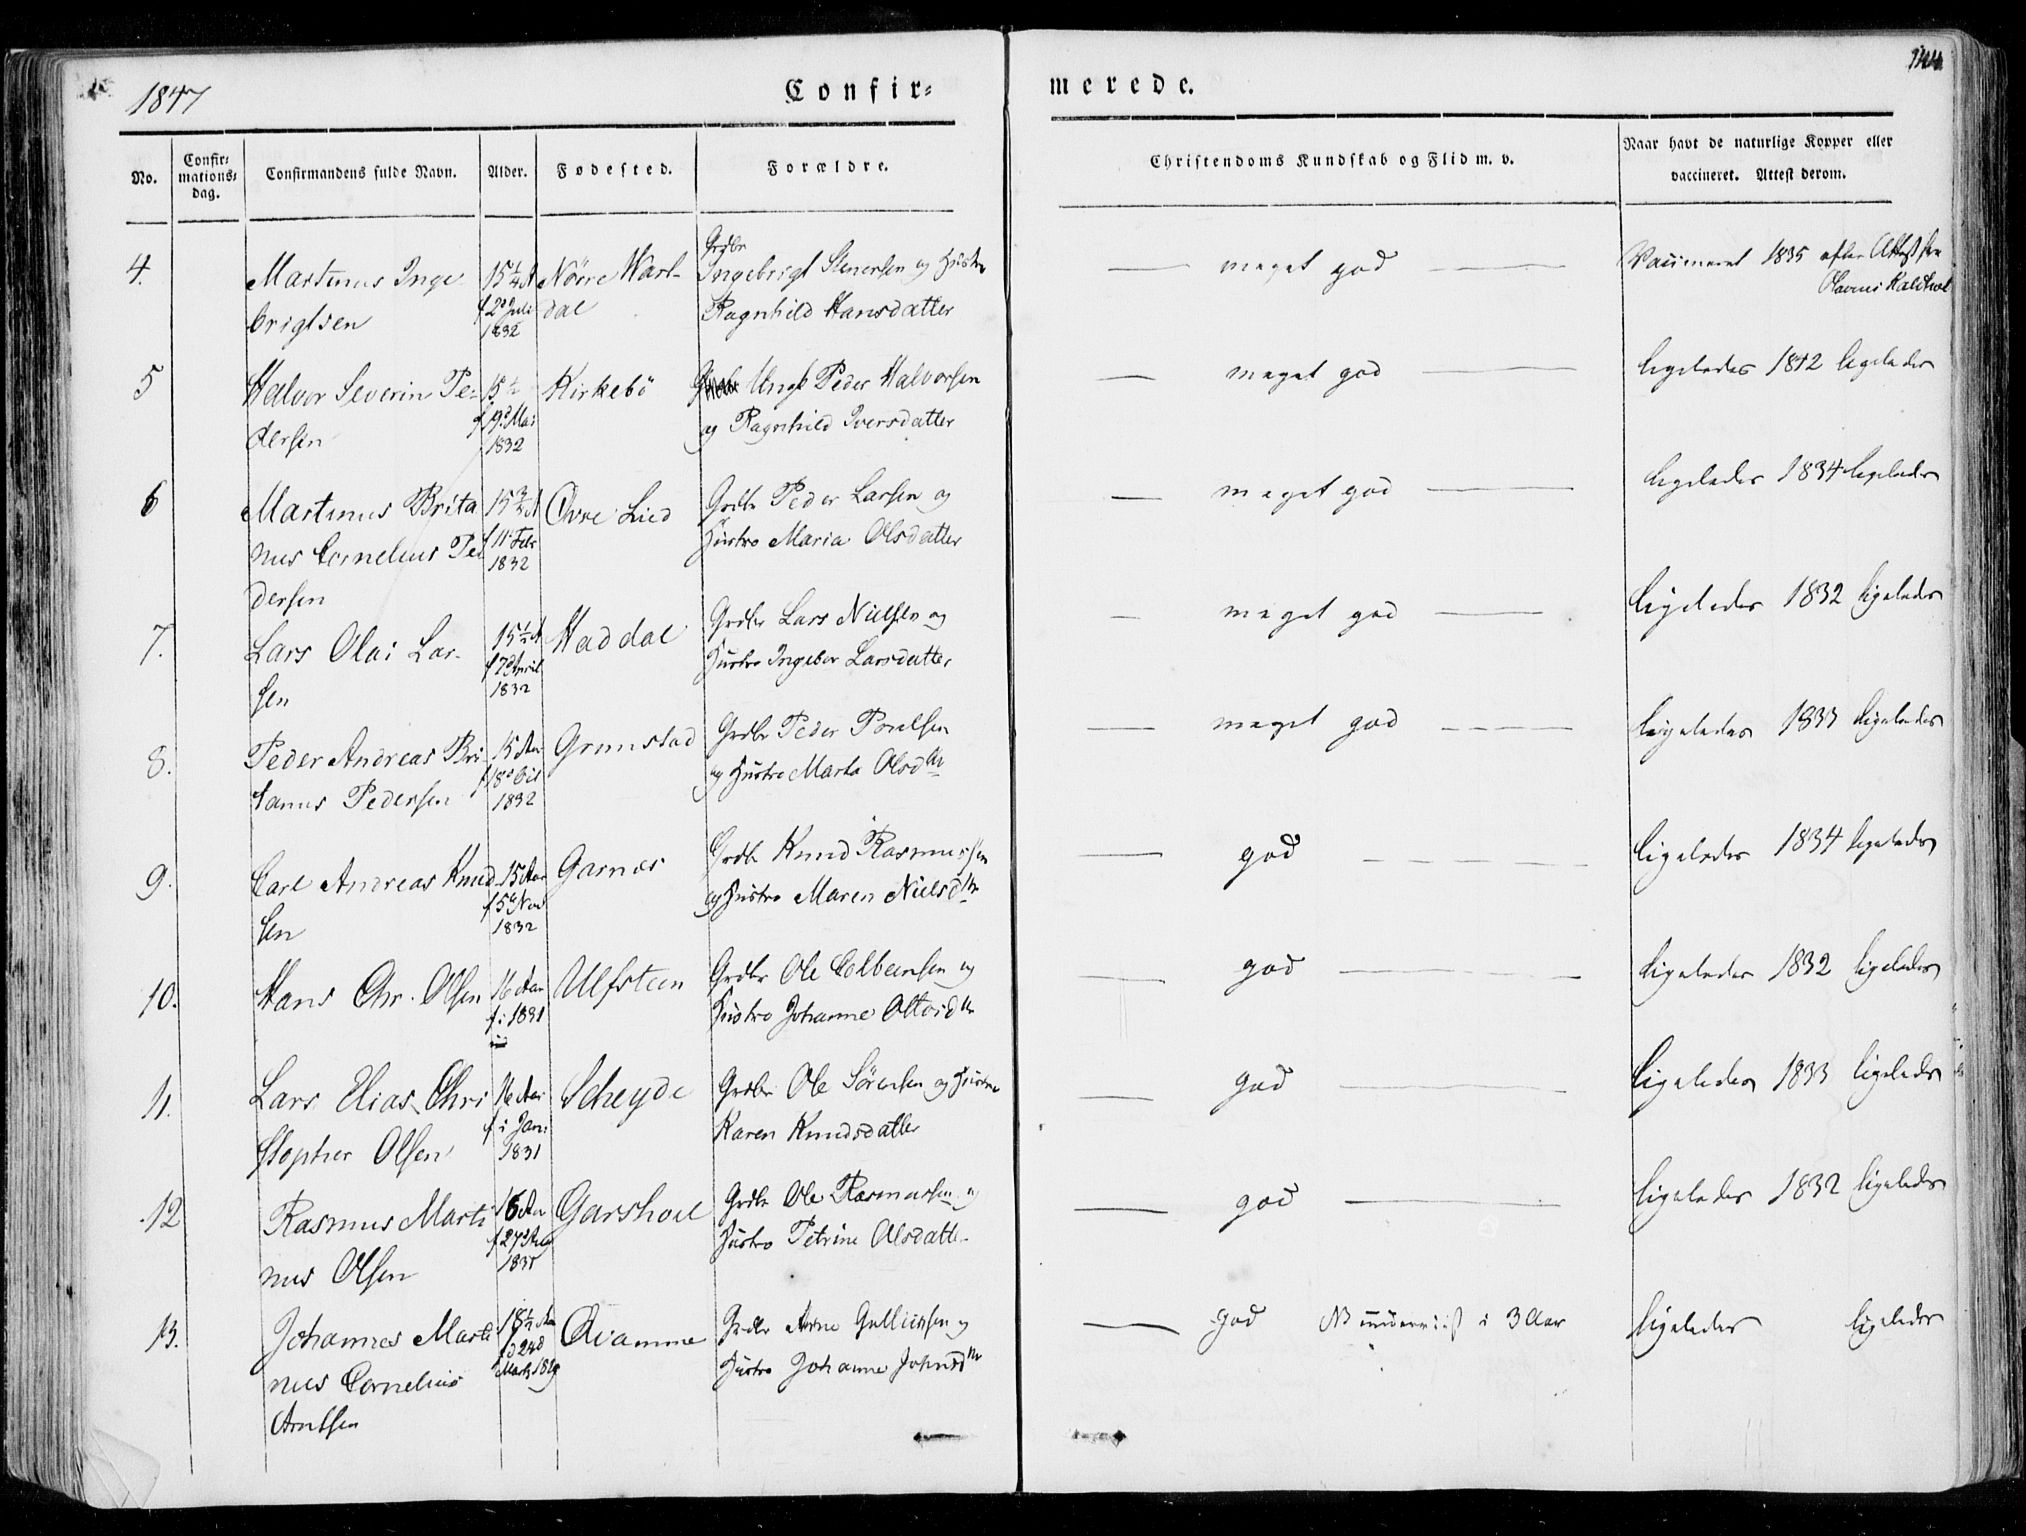 144
1847
Confir=
merede.
No.
Confir=
mations=
dag.
Confirmandens fulde Navn.
Alder.
Fødested.
Forældre.
Christendoms Kundskab og Flid m. v.
Naar havt de naturlige Kopper eller
vaccineret. Attest derom.
4.
Martinus Inge
brigtsen
15¼ A
f 29 Juli
1832
Nörre Vart-
dal
Grdbr
Ingebrigt Stenersen og Hustro
Ragnhild Hansdatter
— meget god —
Vaccineret 1835 efter Attest fra
5
Halvor Severin Pe-
dersen
15½
f 19d Mai
1832
Kirkebö
Peder Halvorsen
og Ragnhild Iversdatter
— meget god —
ligeledes 1842 ligeledes
6
Martinus Brita
nus Cornelius Pe
dersen
15¾ A
f 11 Febr
1832
Övre Lied
Grdbr Peder Larsen og
Hustro Maria Olsdatter
— meget god —
ligeledes 1834 ligeledes
7.
Lars Olai Lar-
sen
15½ A
f 7d April
1832
Haddal
Grdbr Lars Nielsen og
Hustro Ingebor Larsdatter
— meget god —
ligeledes 1832 ligeledes
8.
Peder Andreas Bri
tanus Pedersen
15 Aar
f 18d
1832
Grimstad
Grdbr Peder Povelsen
og Hustro Marta Olsdtr
— meget god —
ligeledes 1833 ligeledes
9.
Carl Andreas Knud
sen
15 Aar
f 5d Nov
1832
Garnes
Grdbr Knud Rasmussen
og Hustro Maren Nielsdtr
— god —
ligeledes 1834 ligeledes
10.
Hans Chr. Olsen
16 Aar
f. i 1831
Ulfsteen
Grdbr Ole Colbensen og
Hustro Johanne Ottosdtr
— god —
ligeledes 1832 ligeledes
11.
Lars Elias Chri
stopher Olsen
16 Aar
f i Jani
1831
Scheyde
Grdbr Ole Sörensen og Hustro
Karen Knudsdatter
— god —
ligeledes 1833 ligeledes
12
Rasmus Marti
nus Olsen
16 Aar
1831
Garshoel
Grdbr Ole Rasmussen og
Hustro Petrine Olsdatter
— god —
ligeledes 1832 ligeledes
13.
Johannes Marti
nus Cornelius
Arntsen
18½ Aar
f 24d
Marts 1829
Qvamme
Grdbr Arne Gulliksen og
Hustro Johanne Johnsdtr
— god NB underviist i 3 Aar
ligeledes ligeledes